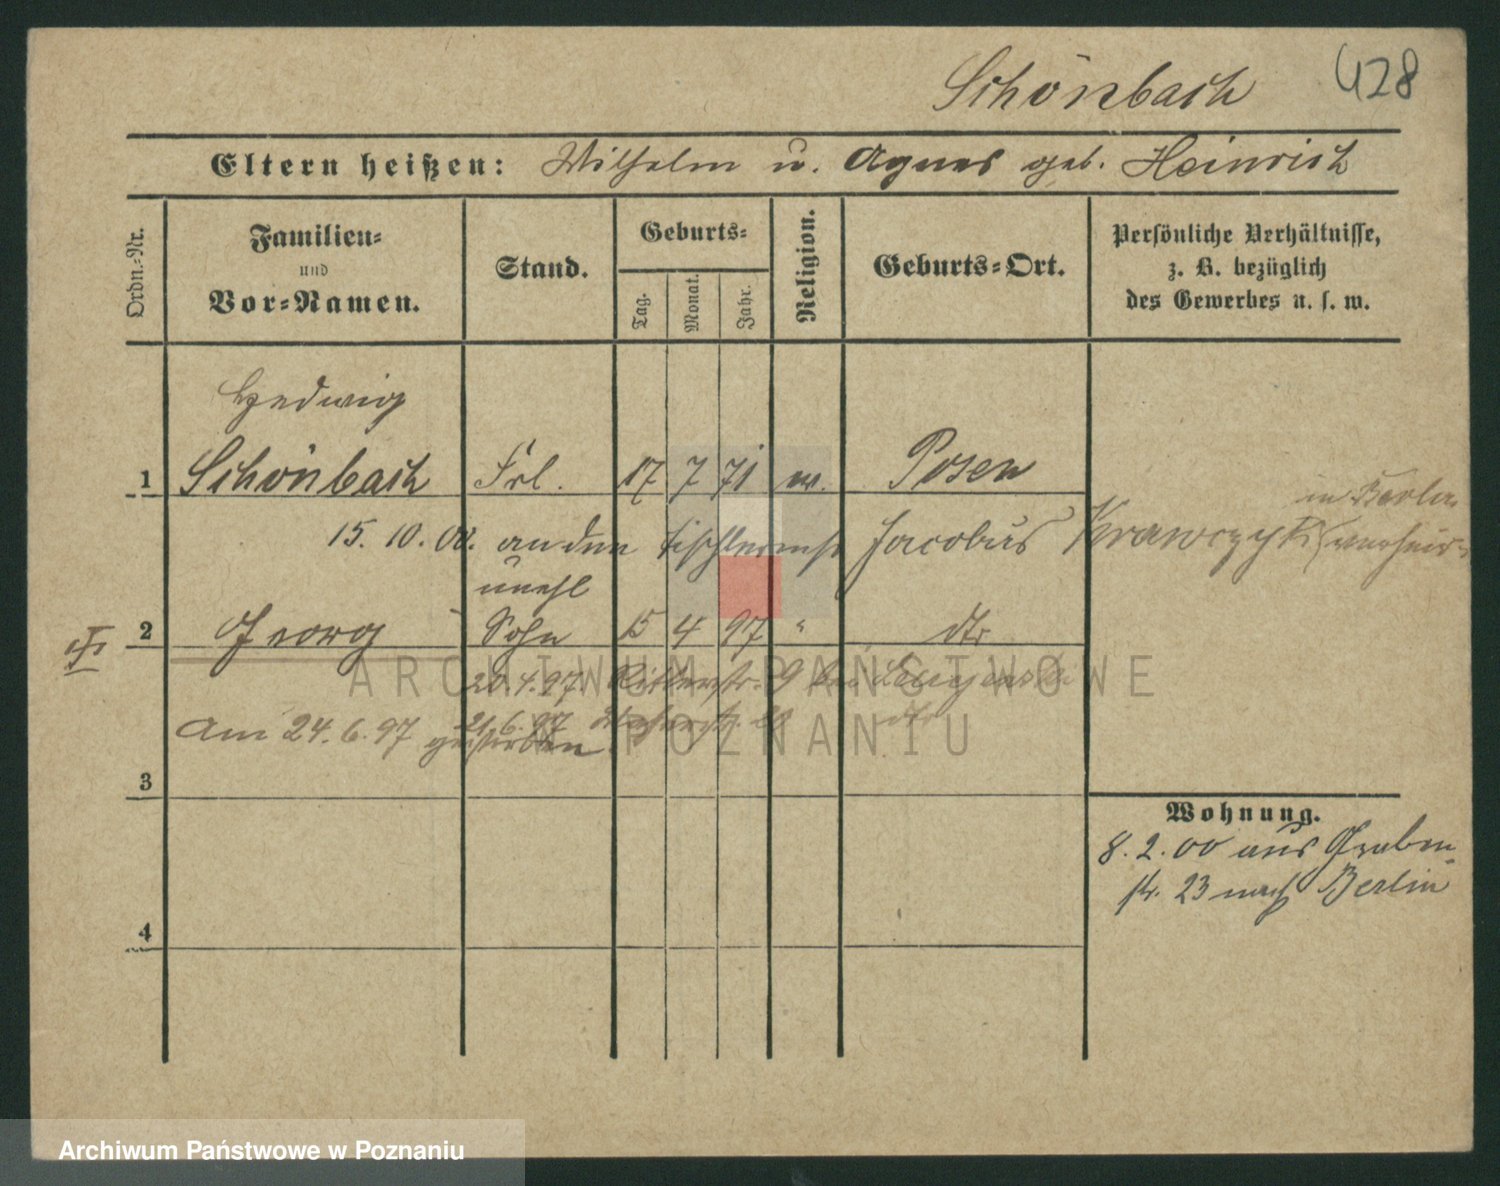 Schönbach 428
Eltern heißen: Wilhelm u. Agnes geb. Heinrich
Ordn.-Nr.
Familien-
und
Vor-Namen.
Stand.
Geburts-
Tag.
Monat.
Jahr.
Religion.
Geburts-Ort.
Persönliche Verhältnisse,
z. B. bezüglich
des Gewerbes u. s. w.
Hedwig
1 Schönbach Frl. 17 7 71 Posen
in Berlin
15. 10. 00. an den Tischlermstr Jacobus Krawczyk verheir.
unehl
2 Georg Sohn 15 4 97 " dto
20.4.97 Ritterstr. 9 bei
21.6.97 dto
Am 24.6.97 gestorben
3
4
Wohnung.
8.2.00 aus Graben-
str. 23 nach Berlin
ARCHIWUM PAŃSTWOWE
W POZNANIU
Archiwum Państwowe w Poznaniu